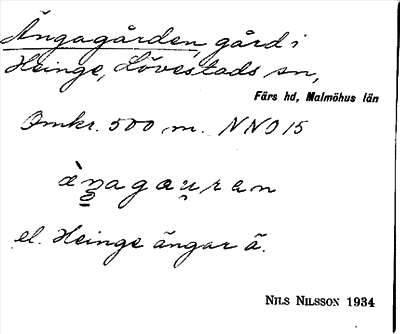 Ängagården, gård i
Heinge, Lövestads sn,
Färs hd, Malmöhus län
Omkr. 500 m. NNO 15
el. Heinge ängar ä.
NILS NILSSON 1934